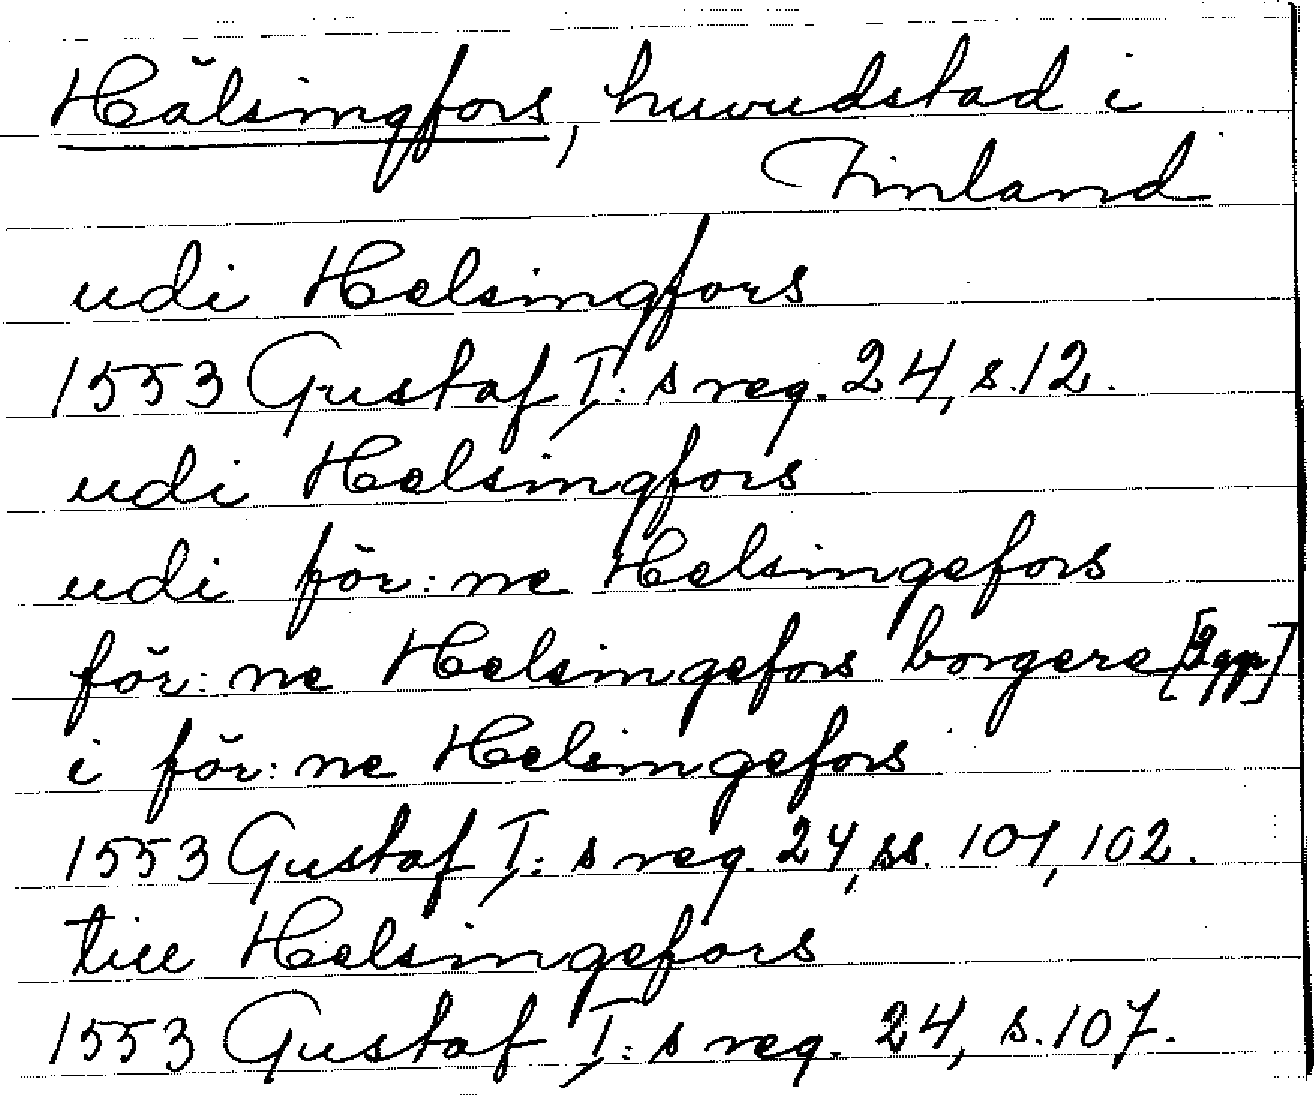 Hälsingfors, huvudstad i
Finland
udi Helsingfors
1553 Gustaf I:s reg. 24, s. 12.
udi Helsingfors
udi för:ne Helsingefors
för:ne Helsingefors borgere [2ggr]
i för:ne Helsingefors
1553 Gustaf I:s reg. 24, ss. 101, 102.
till Helsingefors
1553 Gustaf I:s reg. 24, s. 107.